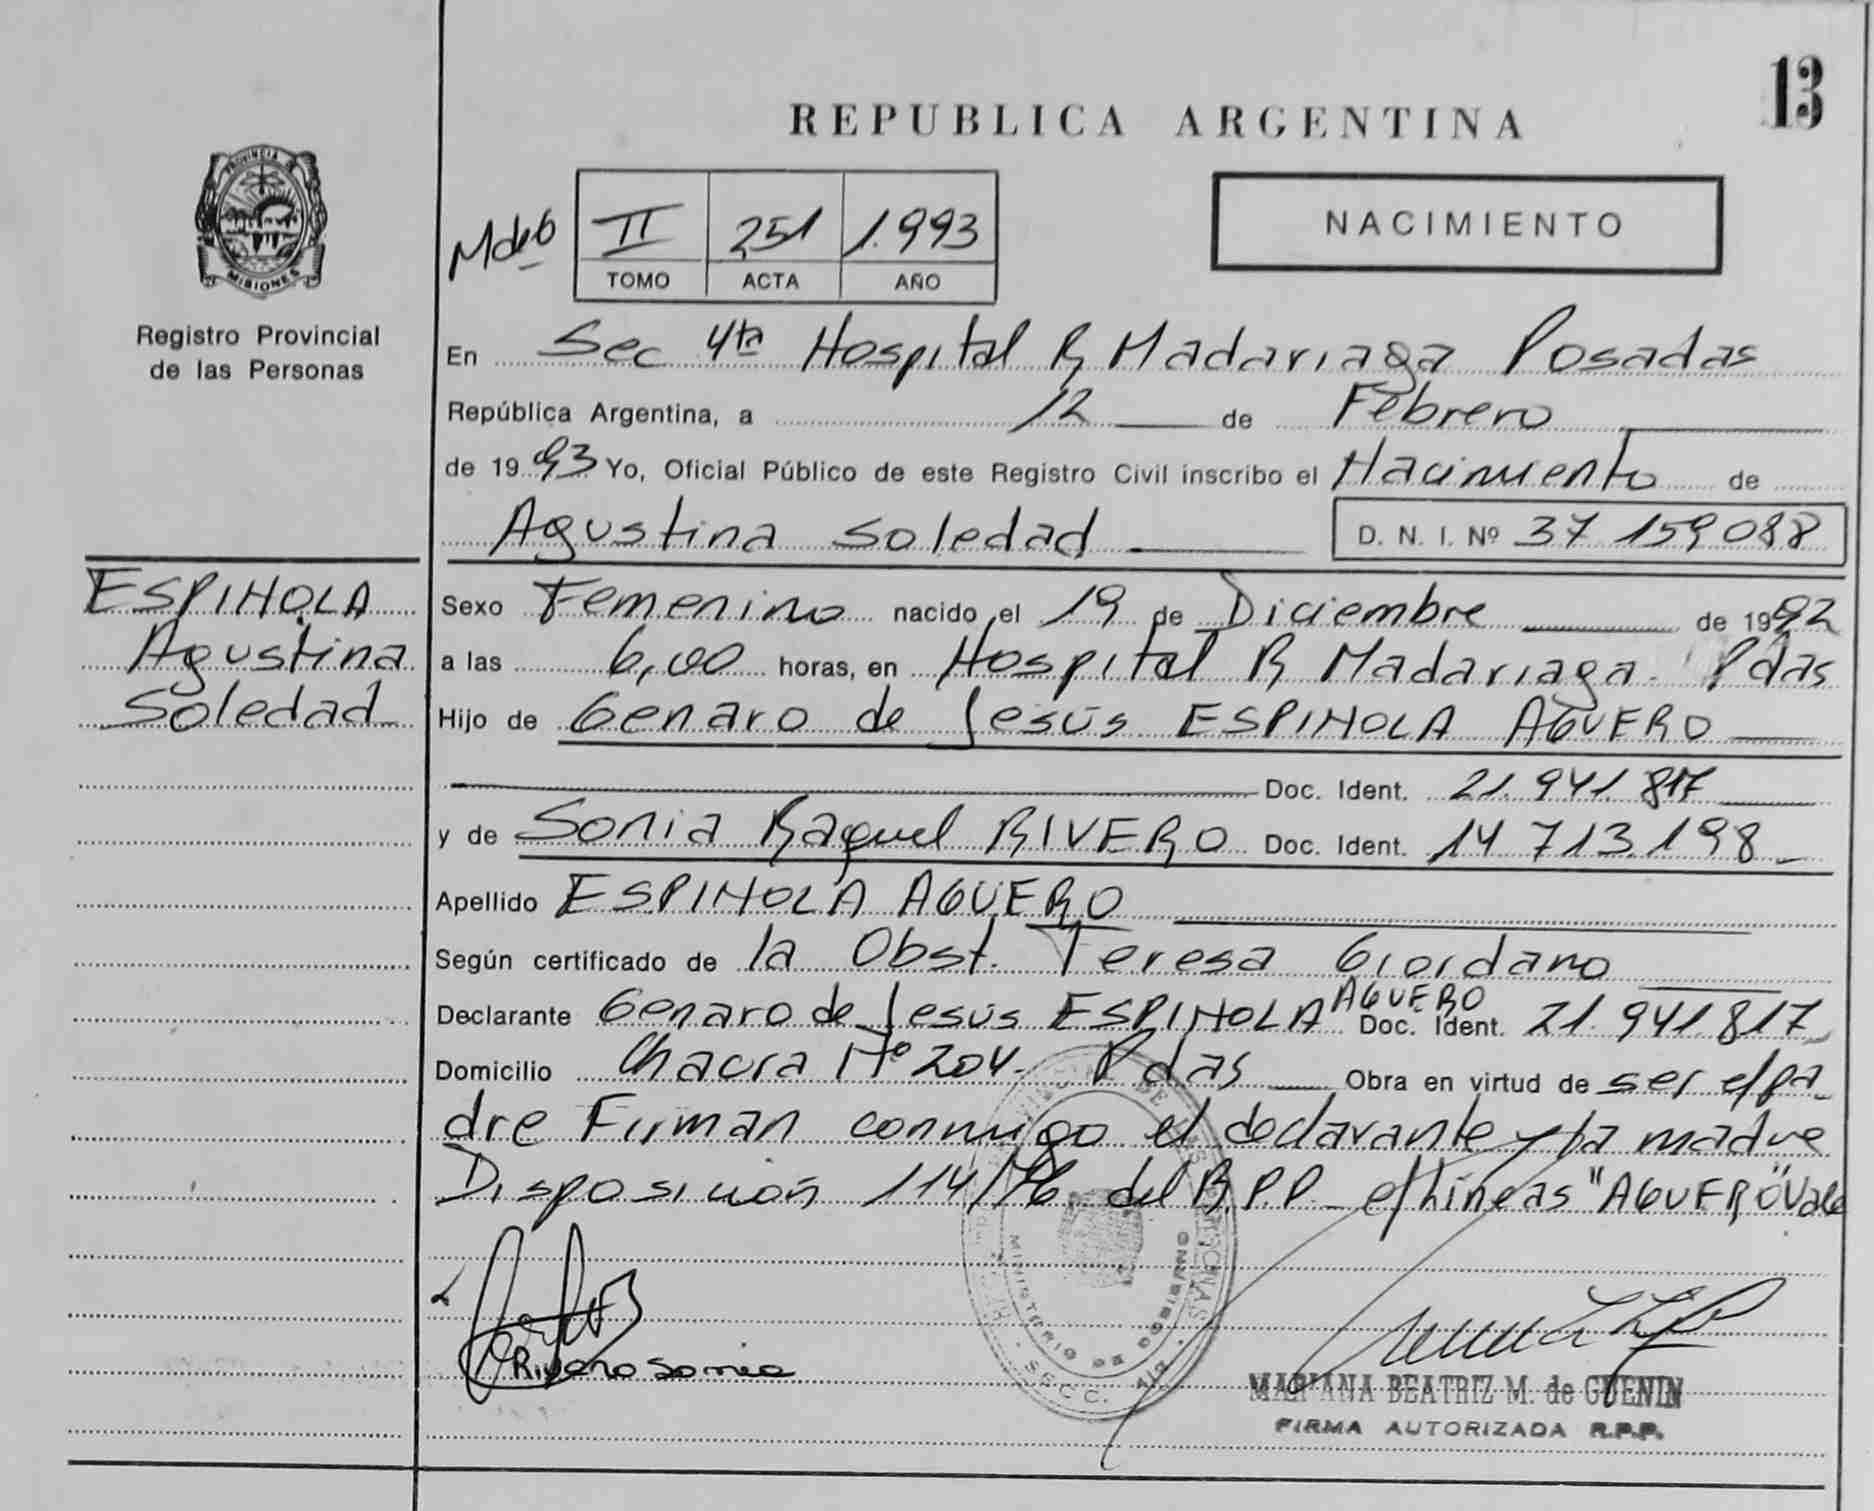 13
REPUBLICA ARGENTINA
PROVINCIA DE
MISIONES
Registro Provincial
de las Personas
II 251 1.993
TOMO ACTA AÑO
NACIMIENTO
En Sec 4ta Hospital R Madariaga Posadas
República Argentina, a 12 de Febrero
de 1993 Yo, Oficial Público de este Registro Civil inscribo el Nacimiento de
Agustina Soledad D. N. I. Nº 37 159 088
ESPINOLA
Agustina
Soledad
Sexo Femenino nacido el 19 de Diciembre de 1992
a las 6,00 horas, en Hospital R Madariaga. Pdas
Hijo de Genaro de Jesús ESPINOLA AGUERO
Doc. Ident. 21.941.817
y de Sonia Raquel RIVERO Doc. Ident. 14 713.198
Apellido ESPINOLA AGÜERO
Según certificado de la Obst. Teresa Giordano
AGUERO
Declarante Genaro de Jesús ESPINOLA Doc. Ident. 21.941.817
Domicilio Chacra Nº 204. Pdas Obra en virtud de ser el pa-
dre Firman conmigo el declarante y la madre
Disposición 114/76 del R.P.P. e/líneas "AGUERO" Vale
Rivero Sonia
MINISTERIO DE GOBIERNO
SECC. 4ta
MARIANA BEATRIZ M. de GUENIN
FIRMA AUTORIZADA R.P.P.